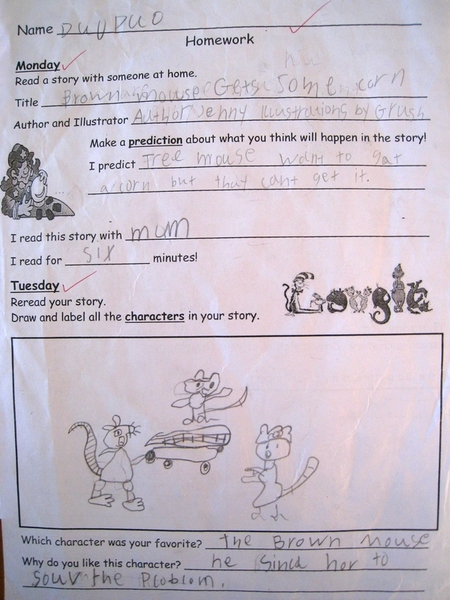 Name
Homework
Monday
Read a story with someone at home.
Title Brown mouse Gets Some corn
Author and Illustrator Author Jenny Illustrations by Grush
Make a prediction about what you think will happen in the story!
I predict Tree mouse want to gat
acorn but that cant get it.
I read this story with mum
I read for six minutes!
Tuesday
Reread your story.
Draw and label all the characters in your story.
Google
Which character was your favorite? the Brown mouse
Why do you like this character? he Sinca her to
souv the Problom.